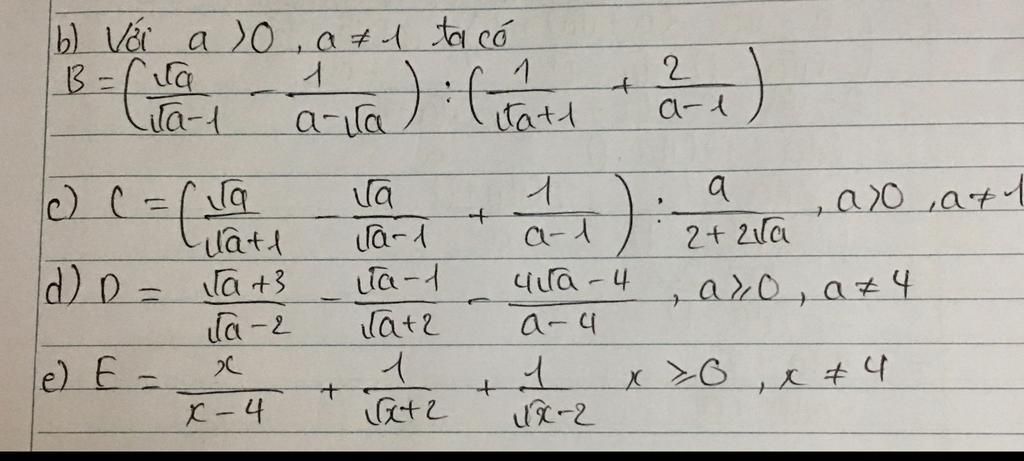 b) Với a > 0, a ≠ 1 ta có
B = (√a/(√a-1) - 1/(a-√a)) : (1/(√a+1) + 2/(a-1))
c) C = (√a/(√a+1) - √a/(√a-1) + 1/(a-1)) : a/(2+2√a), a>0, a≠1
d) D = (√a+3)/(√a-2) - (√a-1)/(√a+2) - (4√a-4)/(a-4), a≥0, a≠4
e) E = x/(x-4) + 1/(√x+2) + 1/(√x-2) x≥0, x≠4